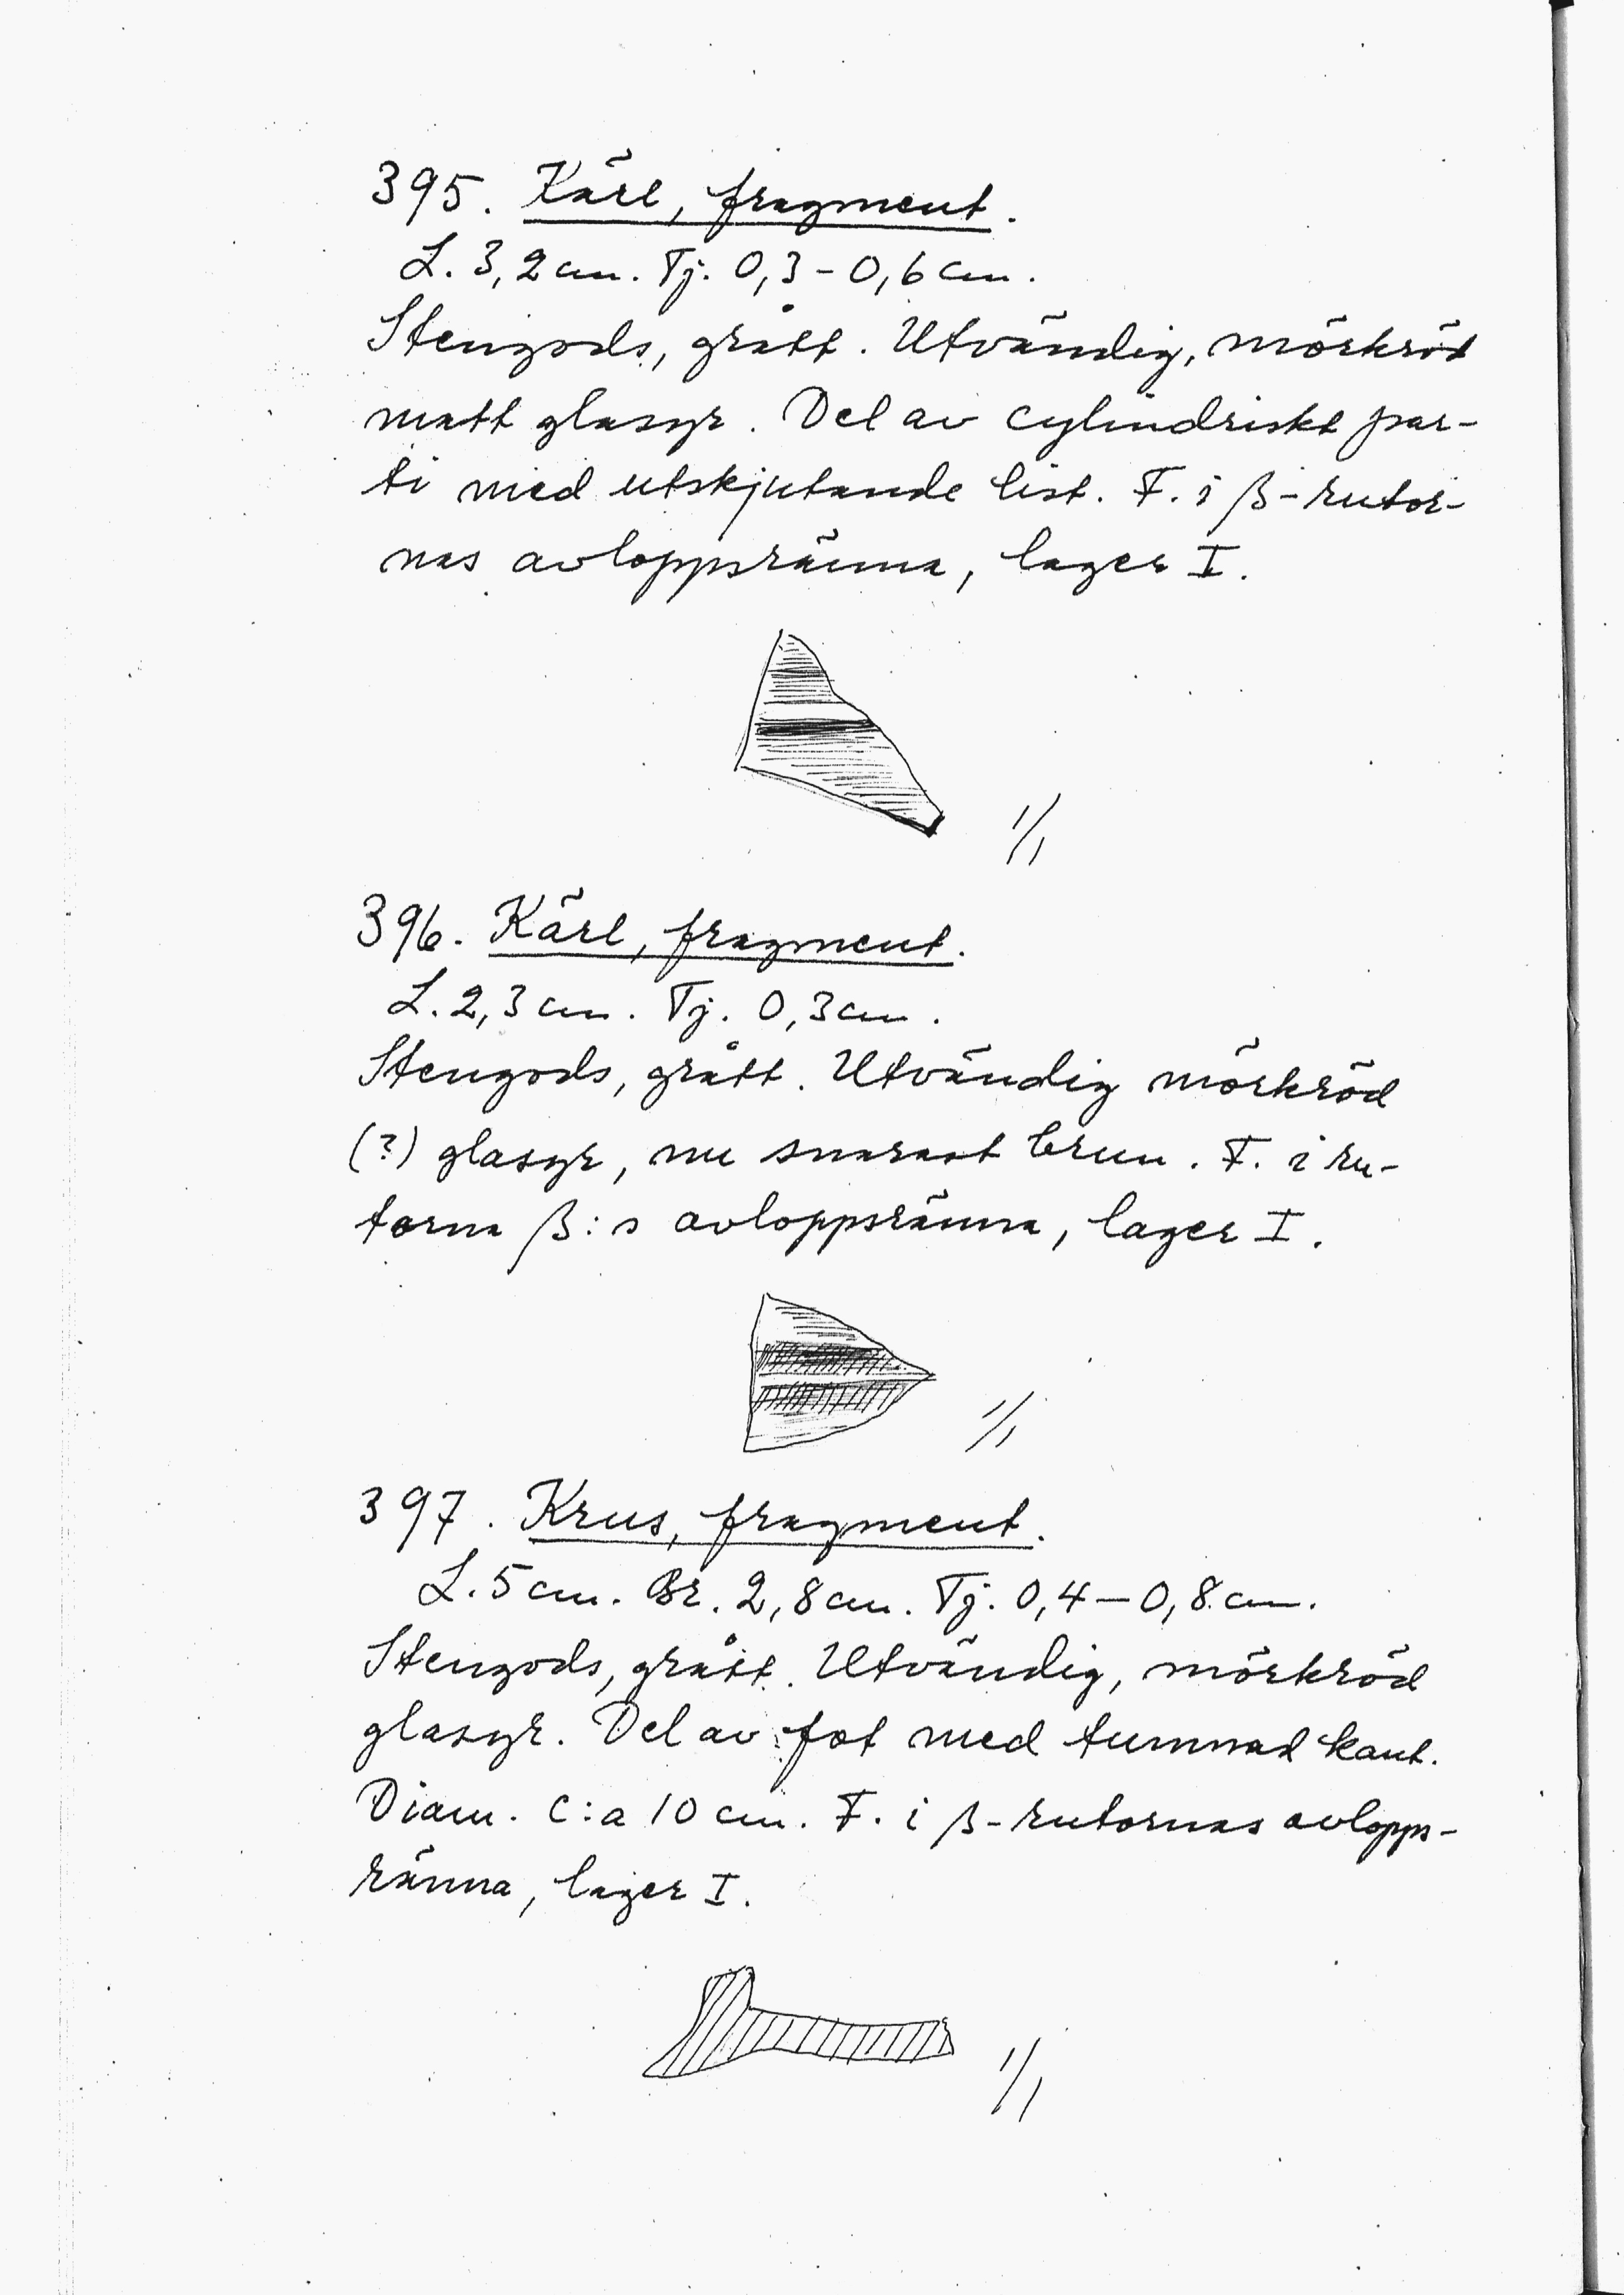 395. Kärl, fragment.
L. 3,2 cm. Tj. 0,3-0,6 cm.
Stengods, grått. Utvändig, mörkröd
matt glasyr. Del av cylindriskt par-
ti med utskjutande list. F. i β-rutor-
nas avloppsränna, lager I.
1/1
396. Kärl, fragment.
L. 2,3 cm. Tj. 0,3 cm.
Stengods, grått. Utvändig mörkröd
(?) glasyr, nu snarast brun. F. i ru-
torna β:s avloppsränna, lager I.
1/1
397. Krus, fragment.
L. 5 cm. Br. 2,8 cm. Tj. 0,4-0,8 cm.
Stengods, grått. Utvändig, mörkröd
glasyr. Del av fot med tummad kant.
Diam. c:a 10 cm. F. i β-rutornas avlopps-
ränna, lager I.
1/1